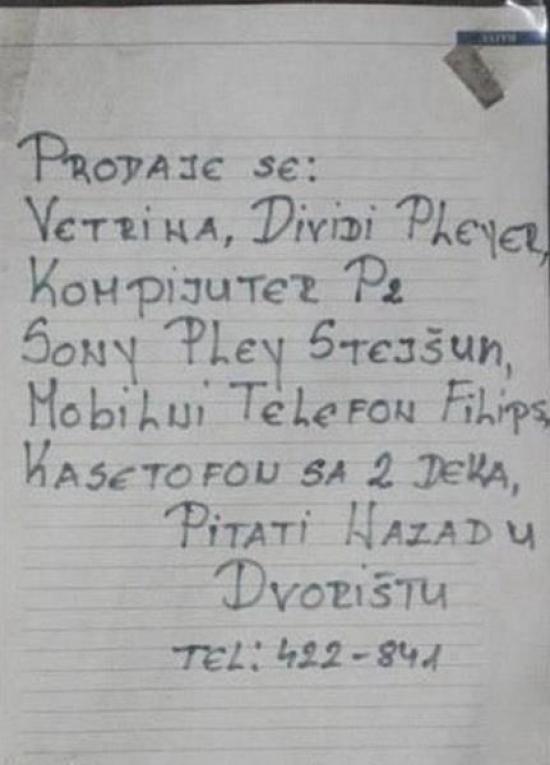 PRODAJE SE:
VETRINA, DIVIDI PLEYER,
KOMPIJUTER P2
SONY PLEY STEJŠUN,
MOBILNI TELEFON FILIPS,
KASETOFON SA 2 DEKA,
PITATI NAZAD U
DVORIŠTU
TEL: 422-841